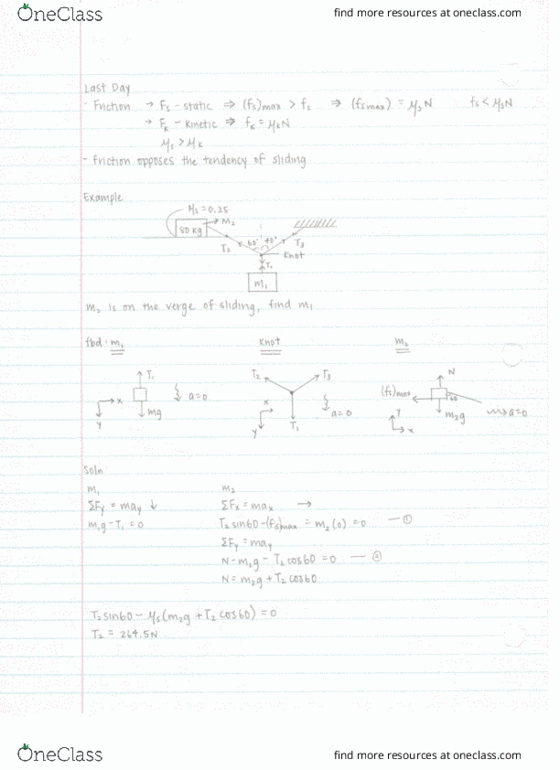 OneClass
find more resources at oneclass.com
Last Day
- Friction → Fs - static ⇒ (fs)max > fs ⇒ (fsmax) = μsN fs < μsN
→ Fk - kinetic ⇒ fk = μkN
μs > μk
- Friction opposes the tendency of sliding
Example
μs = 0.25
80 kg
M2
60° 40°
T2
T3
Knot
T1
m1
m2 is on the verge of sliding, find m1
fbd: m1 Knot M2
T1
x
y
mg
a=0
T2
T3
x
y
T1
a=0
N
(fs)max
60
m2g
y
x
a=0
Soln
m1 m2
ΣFy = may ↓ ΣFx = max →
m1g - T1 = 0 T2 sin60 - (fs)max = m2(0) = 0 — ①
ΣFy = may
N - m2g - T2 cos60 = 0 — ②
N = m2g + T2 cos60
T2 sin60 - μs(m2g + T2 cos60) = 0
T2 = 264.5N
OneClass
find more resources at oneclass.com